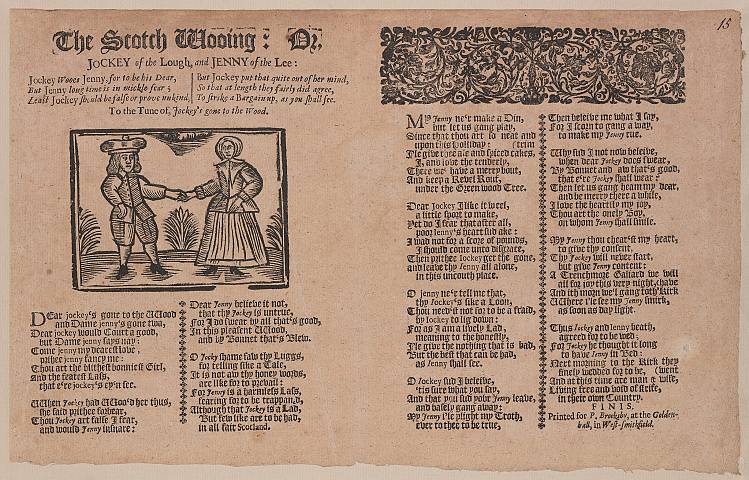 The Scotch Wooing: Or,
JOCKEY of the Lough, and JENNY of the Lee:
Jockey Wooes Jenny, for to be his Dear,
But Jenny long time is in mickle fear;
Least Jockey should be false or prove unkind,
But Jockey put that quite out of her mind,
So that at length they fairly did agree,
To strike a Bargain up, as you shall see.
To the Tune of, Jockey's gone to the Wood.
DEar jockey's gone to the Wood
and Dame jenny's gone twa,
Dear jockey would Court a good,
but Dame jenny says nay:
Come jenny my dearest love,
prithee fancy me:
Thou art the blithest bonniest Girl,
and the fearest Lass,
that e're jockey's ey'n see.
When Jockey had Woo'd her thus,
she said prithee forbear,
Thou Jockey art false I fear,
and would Jenny insnare:
Dear Jenny believe it not,
that thy Jockey is untrue,
For I do swear by all that's good,
In this pleasent Wood,
and by Bonnet that's Blew.
O Jocky shame faw thy Luggs,
for telling sike a Tale,
It is not aw thy honey words,
are like for to prevail:
For Jenny is a harmless Lass,
fearing for to be trappan,d,
Although that Jockey is a Lad,
But few like are to be had,
in all fair Scotland.
15
MY Jenny ne'r make a Din,
but let us gang play,
Since that thou art so neat and
upon this Holliday: (trim
I'le give thee ale and spiced cakes,
I, and love thee tenderly,
There we have a merry bout,
And keep a Revel Rout,
under the Green wood Tree.
Dear Jockey I like it weel,
a little sport to make,
Yet do I fear that after all,
poor Jenny's heart sud ake:
I wad not for a score of pounds,
I should come unto disgrace,
Then prithee Jockey get the gone,
and leave thy Jenny all alone,
in this uncouth place.
O Jenny ne'r tell me that,
thy Jockey's like a Loon,
Thou need'st not for to be afraid,
by Jockey to lig down:
For as I am a lively Lad,
meaning to the honestly,
I'le give the nothing that is bad,
But the best that can be had,
as Jenny shall see.
O Jockey sud I beleive,
'tis sure what you say,
And that you sud your Jenny leave,
and basely gang away:
My Jenny I'le plight my Troth,
ever to thee to be true,
Then beleive me what I say,
For I scorn to gang a way,
to make my Jenny rue.
Why sud I not now beleive,
when dear Jockey does swear,
By Bonnet and aw that's good,
that e're Jockey shall wear:
Then let us gang heam my dear,
and be merry there a while,
I love the heartily my joy,
Thou art the onely Boy,
on whom Jenny shall smile.
My Jenny thou chear'st my heart,
to give thy consent,
Thy Jockey will never start,
but give Jenny content:
A Trenchmore Galiard we will
all for joy this very night, (have
And ith morn we'l gang toth' Kirk
Where I'le see my Jenny smirk,
as soon as day light.
Thus Jockey and Jenny beath,
agreed for to be wed;
For Jockey he thought it long
to have Jenny in Bed:
Next morning to the Kirk they
finely wedded for to be, (went
And at this time are man & wife,
Living free and void of strife,
in their own Country.
FINIS.
Printed for P, Brooksby, at the Golden-
ball, in West-smithfield.